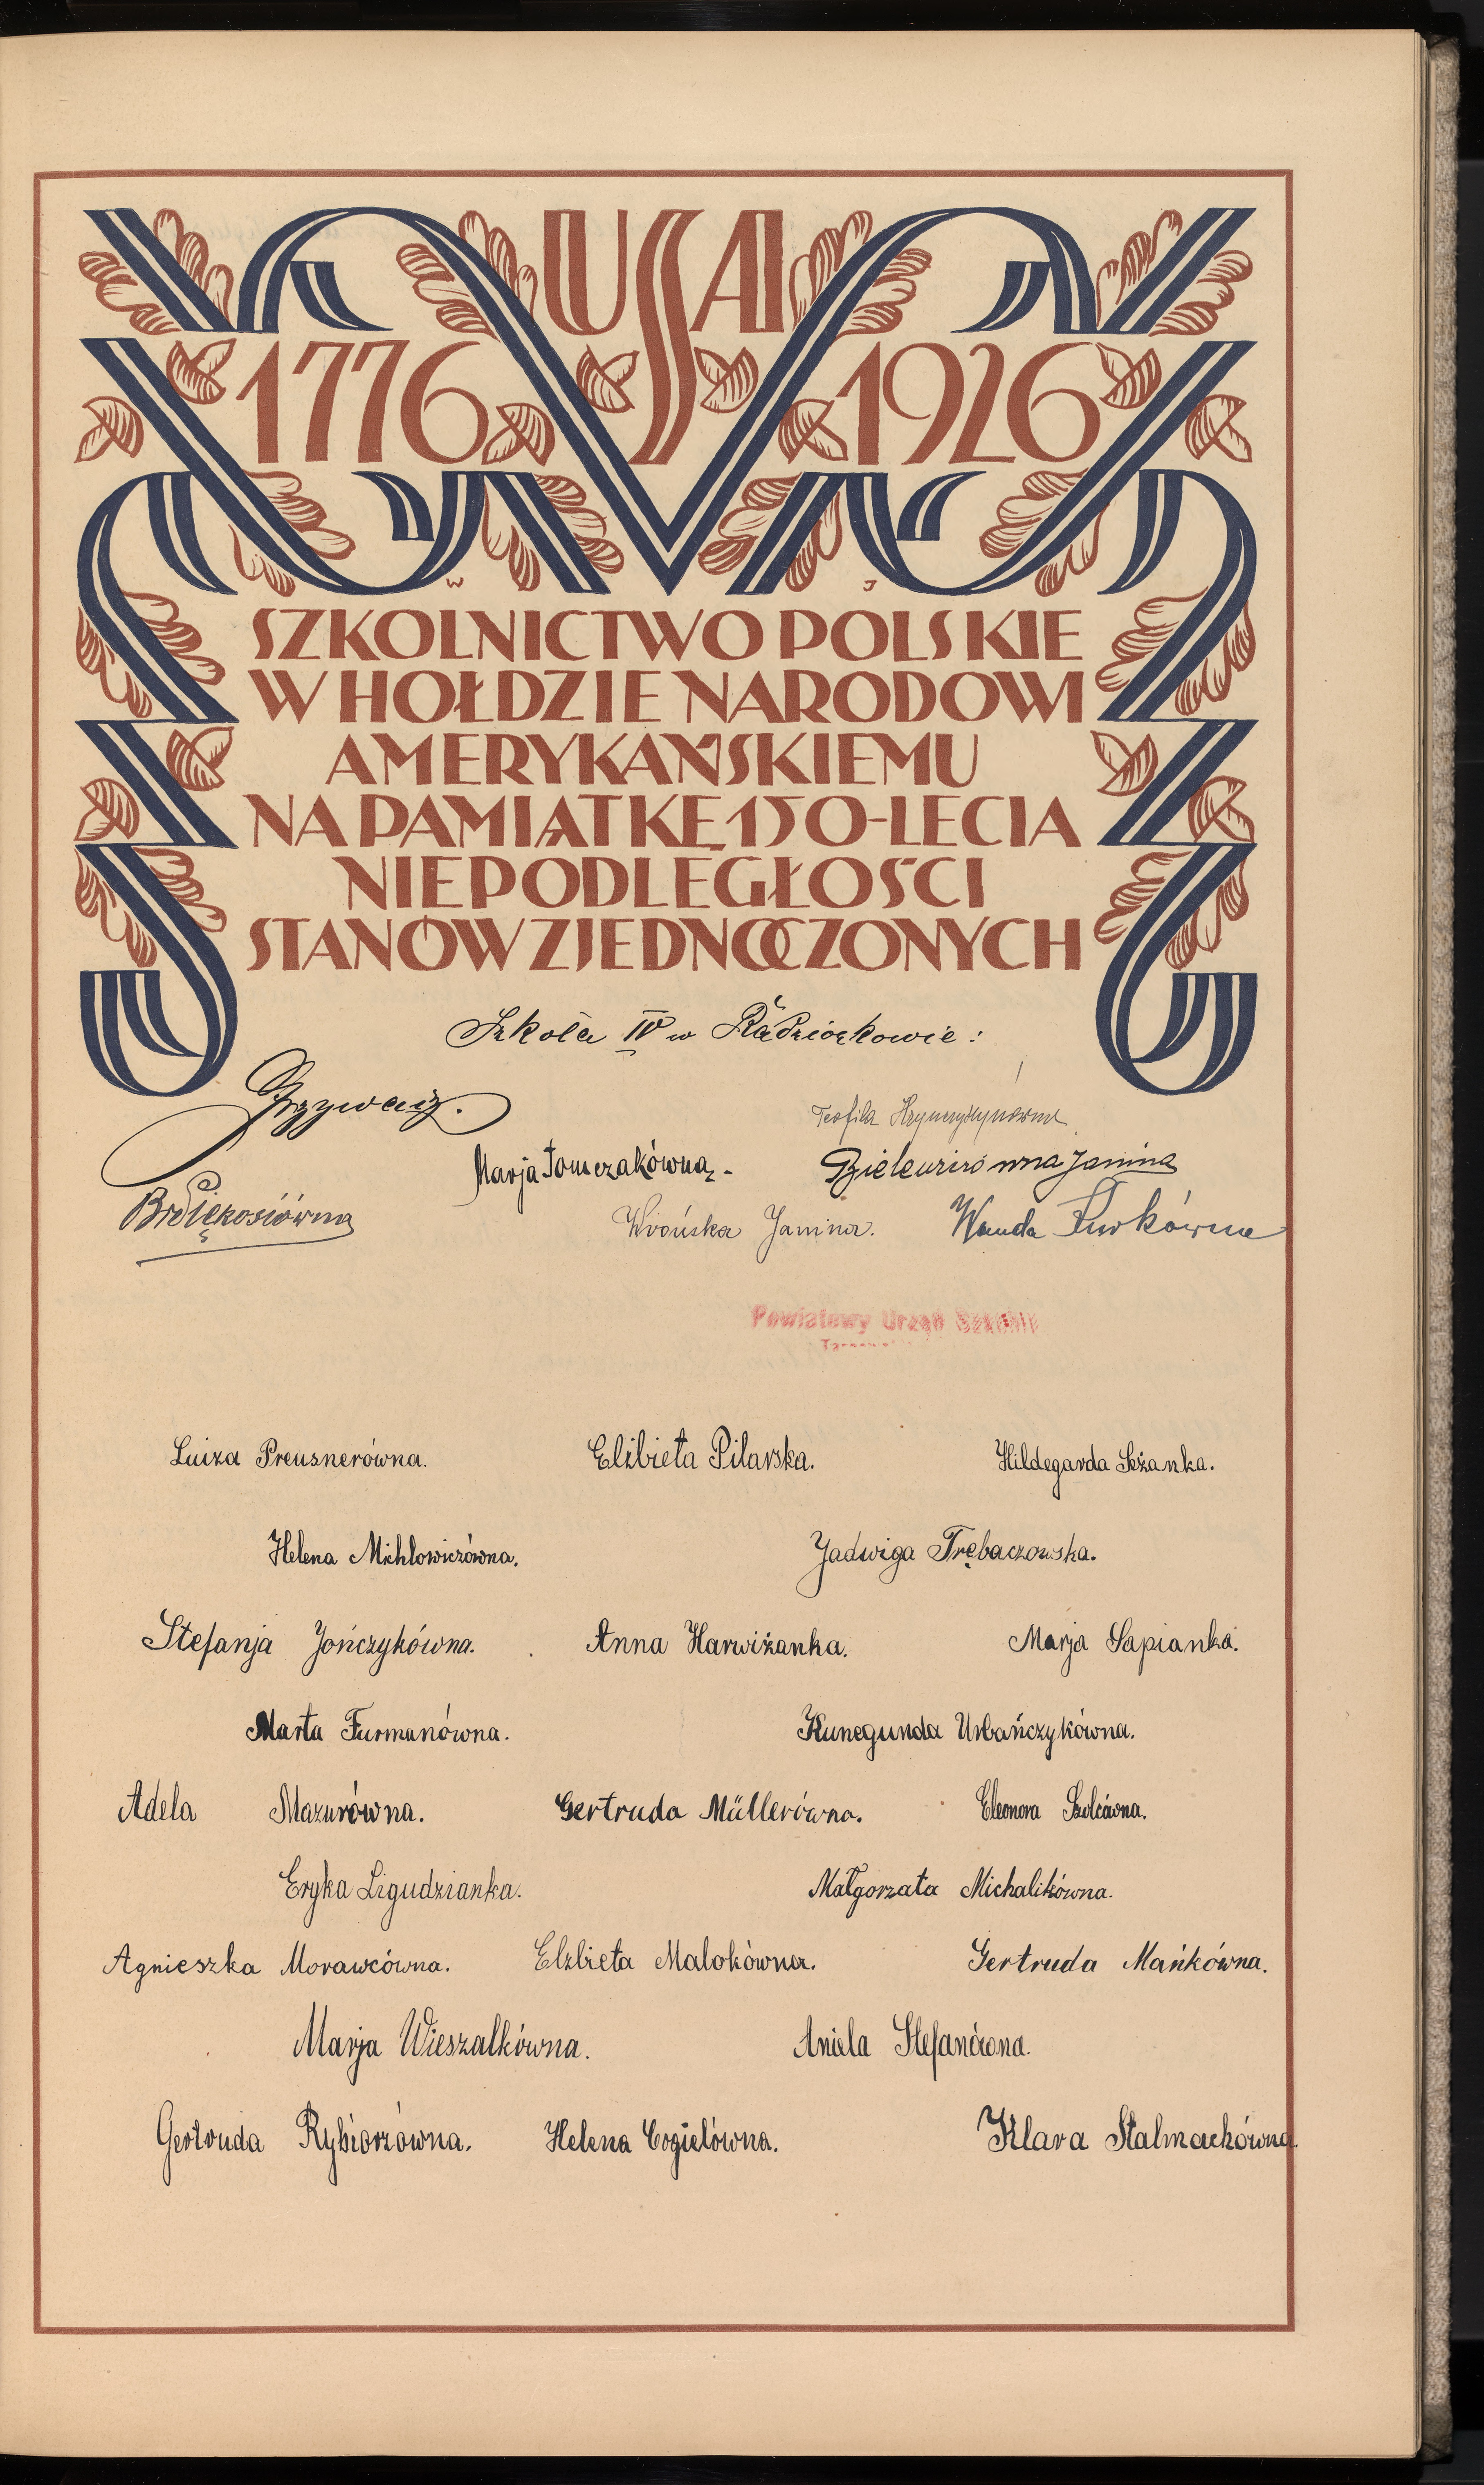 USA
1776 1926
W J
SZKOLNICTWO POLSKIE
W HOŁDZIE NARODOWI
AMERYKAŃSKIEMU
NA PAMIĄTKĘ 150-LECIA
NIEPODLEGŁOŚCI
STANÓW ZJEDNOCZONYCH
Szkoła IV w Radzionkowie:
Teofila
Marja Tomczakówna.
Janina
Wrońska Janina. Wanda
Powiatowy Urząd Szkolny
Luiza Preusnerówna. Elżbieta Pilarska. Hildegarda Leżanka.
Helena Michlowiczówna. Jadwiga Trębaczowska.
Stefanja Jończykówna. Anna Harwiżanka. Marja Sapianka.
Marta Furmanówna. Kunegunda Urbańczykówna.
Adela Mazurówna. Gertruda Müllerówna. Eleonora Szolcówna.
Eryka Ligudzianka. Małgorzata Michalikówna.
Agnieszka Morawcówna. Elżbieta Malokówna. Gertruda Mańkówna.
Marja Wieszalkówna. Aniela Stefanówna.
Gertruda Rybiorzówna. Helena Cogielówna. Klara Stalmachówna.